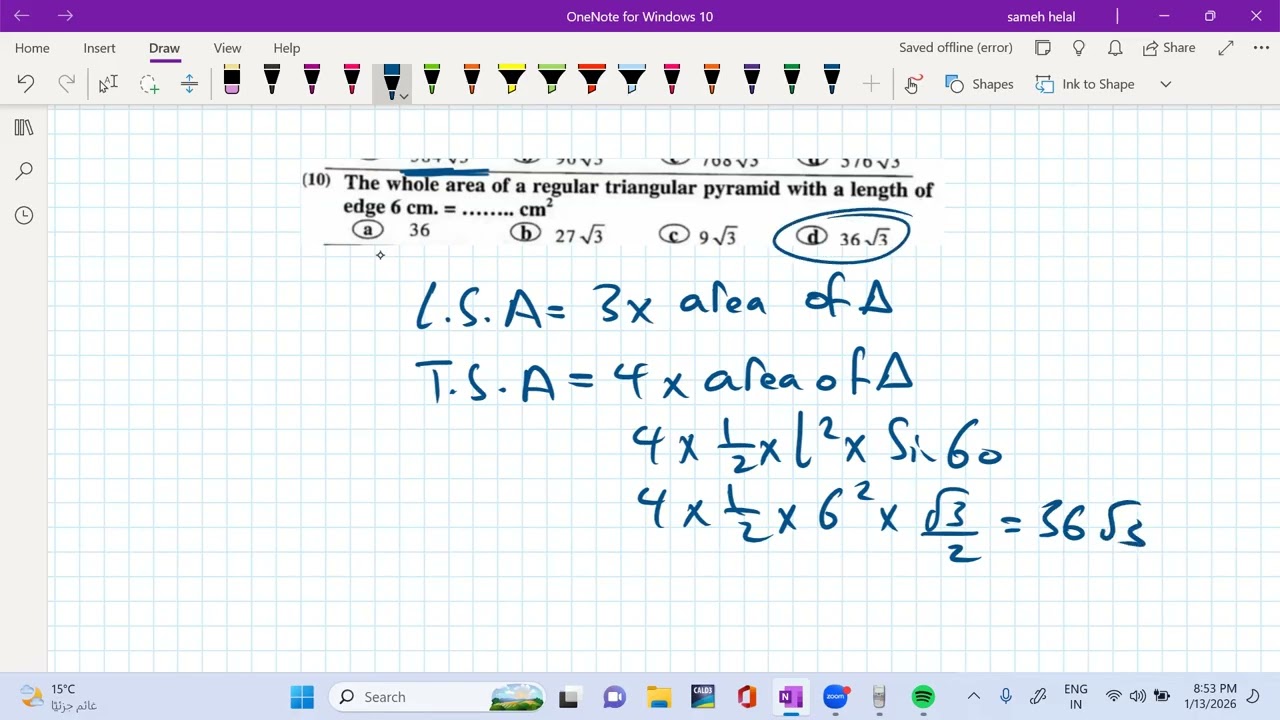 OneNote for Windows 10
sameh helal
Home Insert Draw View Help
Saved offline (error)
Share
Shapes
Ink to Shape
(10) The whole area of a regular triangular pyramid with a length of
edge 6 cm. = ........ cm²
ⓐ 36 ⓑ 27√3 ⓒ 9√3 ⓓ 36√3
L.S.A = 3 x area of Δ
T.S.A = 4 x area of Δ
4 x 1/2 x l² x Sin 60
4 x 1/2 x 6² x √3/2 = 36√3
15°C
Search
CALD3
zoom
ENG
IN